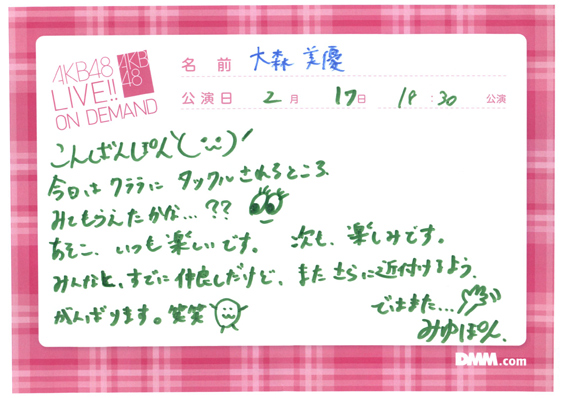 AKB48
LIVE!!
ON DEMAND
AKB
48
名前 大森 美優
公演日 2月 17日 18:30 公演
こんばんぽん(
今日は クララに タックルされるところ、
みてもらえたかな…??
あそこ、いつも楽しいです。 次も、楽しみです。
みんなと、すでに仲良しだけど、またさらに近付けるよう、
がんばります。笑笑
ではまた…
みゆぽん.
DMM.com